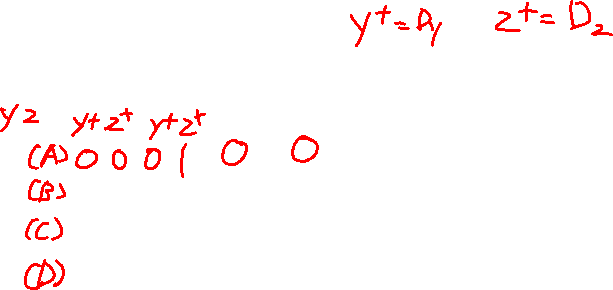 y+ = D1 z+ = D2
yz y+z+ y+z+
(A) 0 0 0 1 0 0
(B)
(C)
(D)